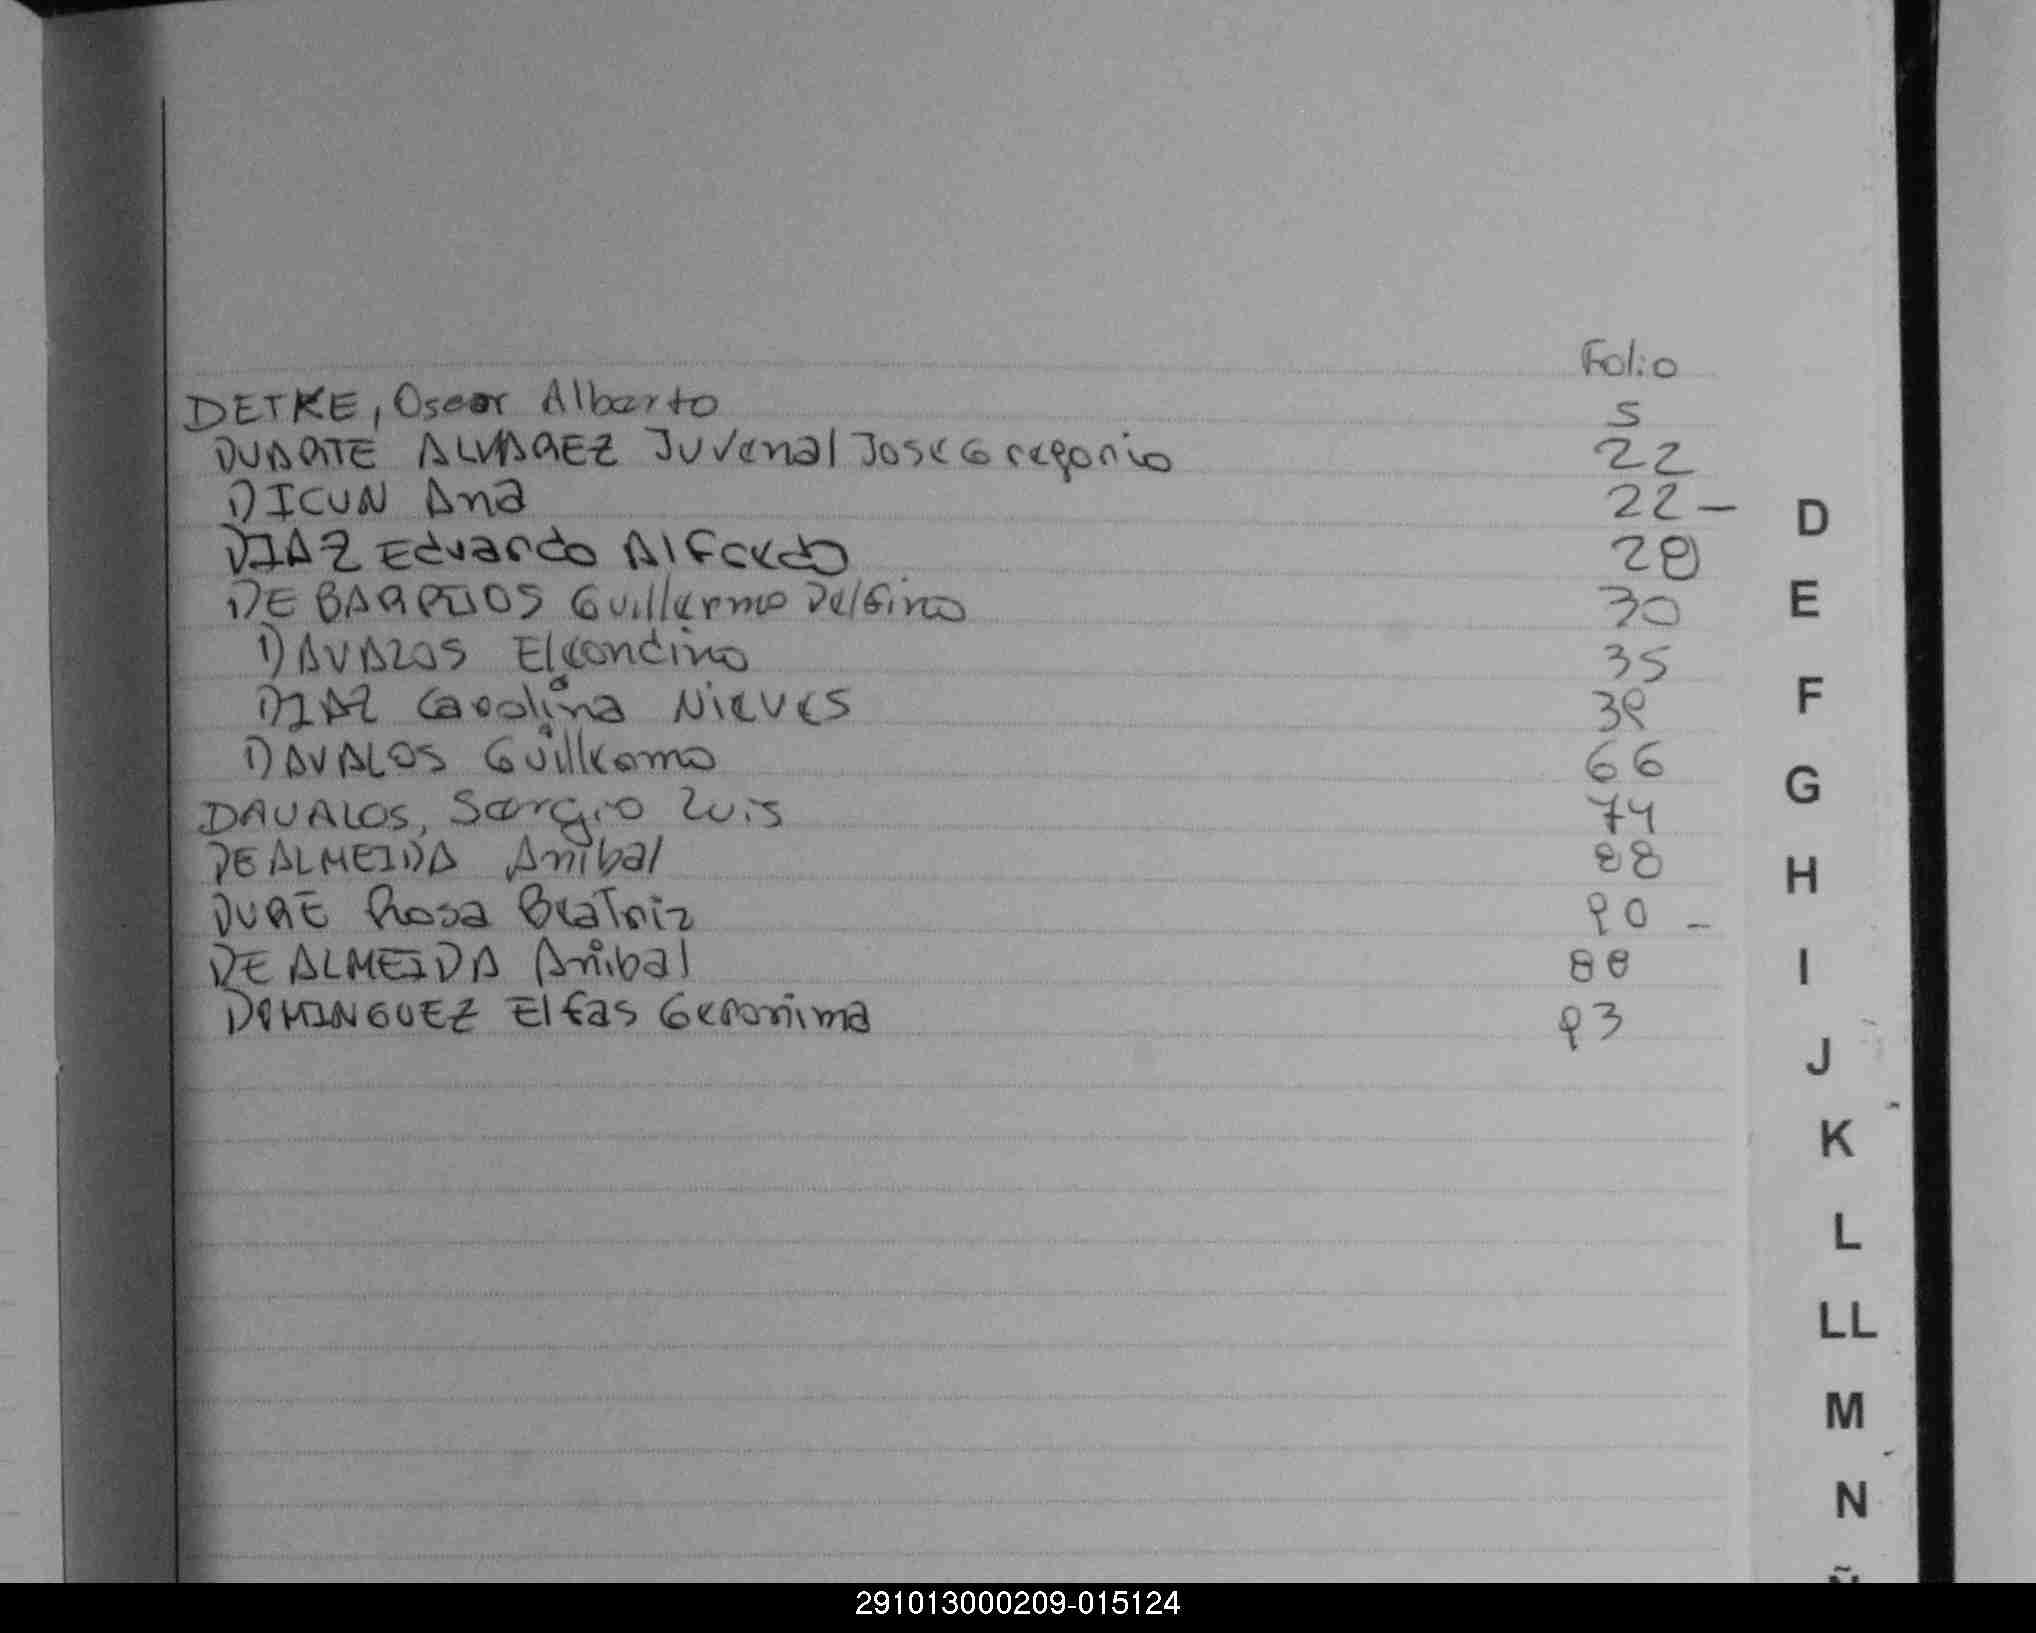 Folio
DETKE, Oscar Alberto 5
DUARTE ALVAREZ Juvenal Jose Gregorio 22
DICUN Ana 22 -
DIAZ Eduardo Alfredo 28
DE BARRIOS Guillermo Delfino 30
DAVALOS 35
DIAZ Carolina Nieves 39
DAVALOS Guillermo 66
DAVALOS, Sergio Luis 74
DE ALMEIDA Anibal 88
DURE Rosa Beatriz 90 -
DE ALMEIDA Anibal 88
DOMINGUEZ Elfas Geronima 93
D
E
F
G
H
I
J
K
L
LL
M
N
291013000209-015124